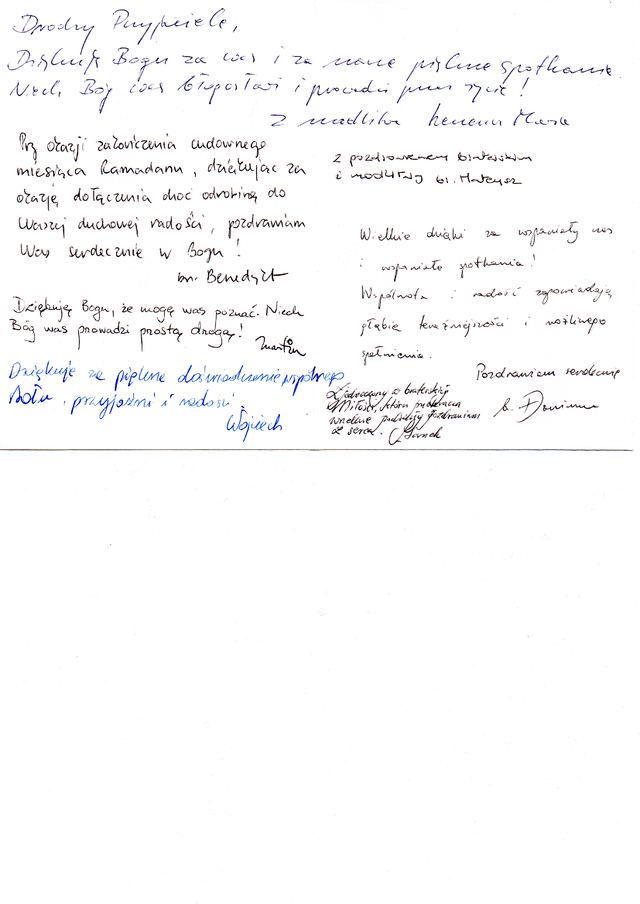 Drodzy Przyjaciele,
Dziękuję Bogu za was i za nasze piękne spotkanie.
Niech Bóg was błogosławi i prowadzi przez życie!
z modlitwą Maria
Przy okazji zakończenia cudownego
miesiąca Ramadanu, dziękując za
okazję dołączenia choć odrobinę do
Waszej duchowej radości, pozdrawiam
Was serdecznie w Bogu!
br. Benedykt
Dziękuję Bogu, że mogę was poznać. Niech
Bóg was prowadzi prostą drogą!
Marcin
Dziękuje za piękne doświadczenie wspólnego
stołu, przyjaźni i radości.
Wojciech
z pozdrowieniem braterskim
i modlitwą br. Mateusz
Wielkie dzięki za wspaniały czas
i wspaniałe spotkania!
Wspólnota i radość zapowiadają
głębię teraźniejszości i możliwego
spełnienia.
Pozdrawiam serdecznie
Zjednoczony z braterską
Miłością, która przekracza
wszelkie podziały pozdrawiam
z serca.